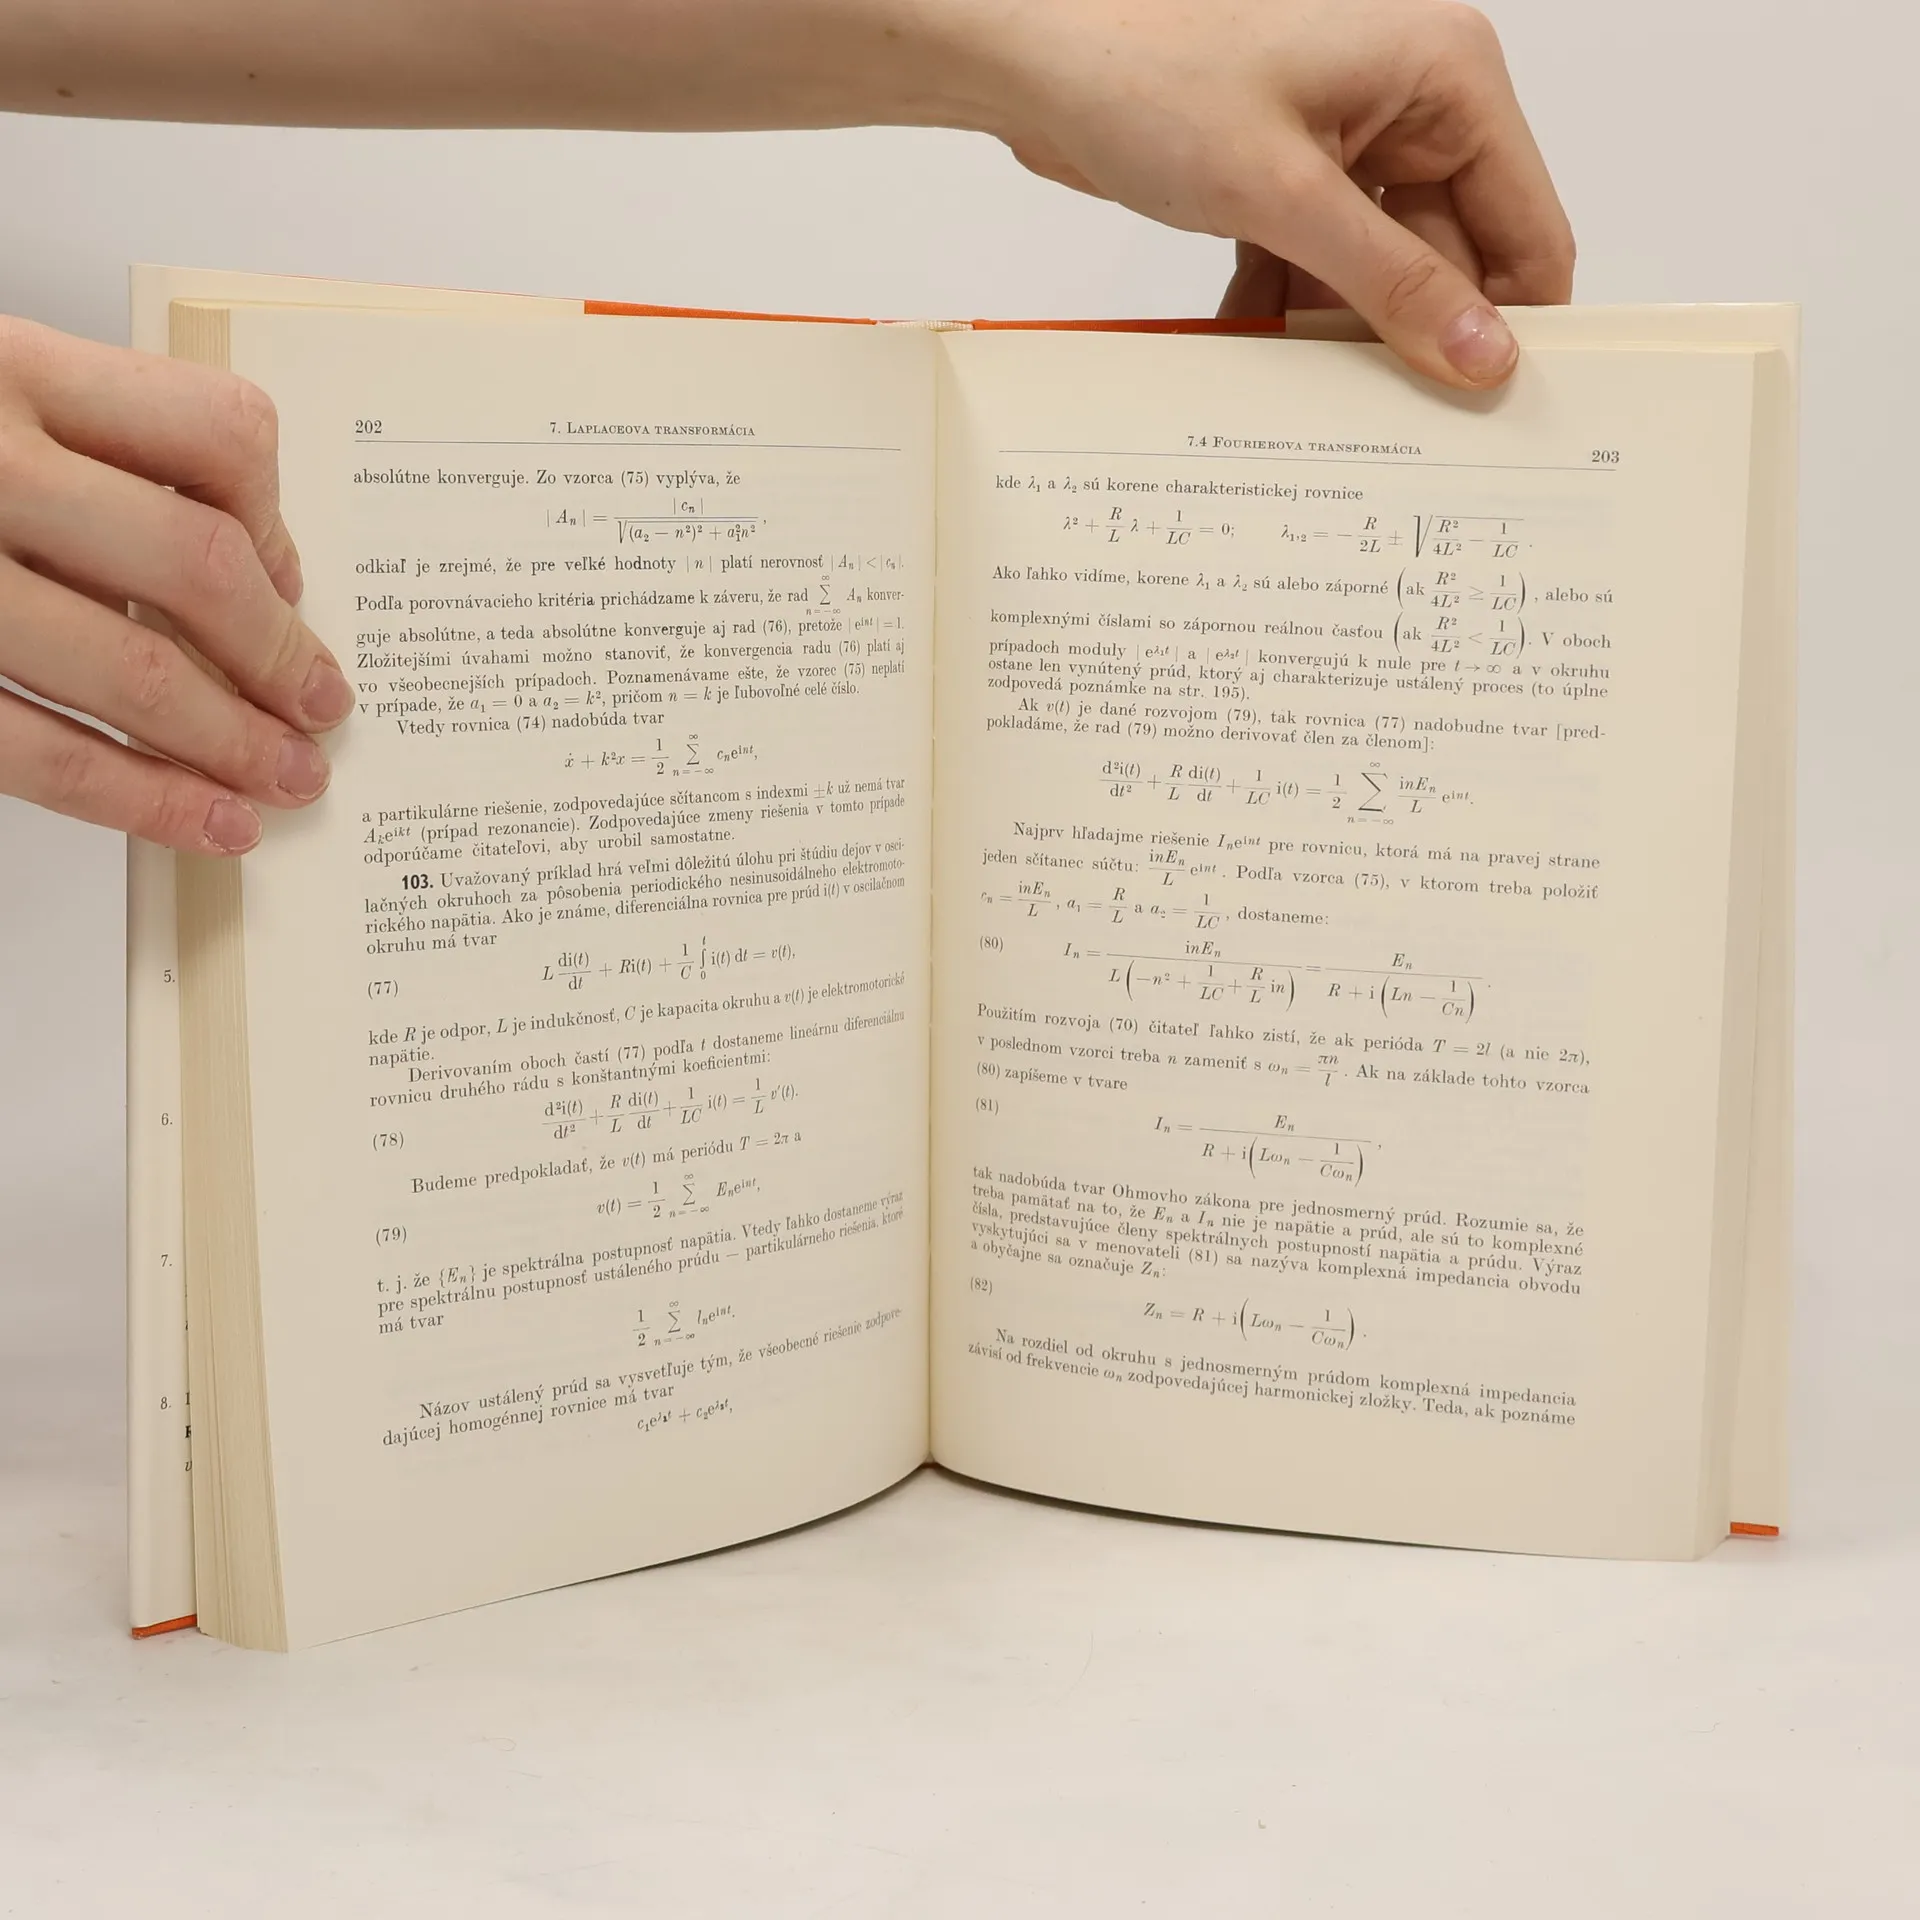 202 7. LAPLACEOVA TRANSFORMÁCIA
absolútne konverguje. Zo vzorca (75) vyplýva, že
| Aₙ | = | cₙ | / √((a₂ − n²)² + a₁²n²) ,
odkiaľ je zrejmé, že pre veľké hodnoty | n | platí nerovnosť | Aₙ | < | cₙ |.
Podľa porovnávacieho kritéria prichádzame k záveru, že rad ∑_{n=−∞}^{∞} Aₙ konver-
guje absolútne, a teda absolútne konverguje aj rad (76), pretože | e^{int} | = 1.
Zložitejšími úvahami možno stanoviť, že konvergencia radu (76) platí aj
vo všeobecnejších prípadoch. Poznamenávame ešte, že vzorec (75) neplatí
v prípade, že a₁ = 0 a a₂ = k², pričom n = k je ľubovoľné celé číslo.
Vtedy rovnica (74) nadobúda tvar
ẋ + k²x = 1/2 ∑_{n=−∞}^{∞} cₙe^{int},
a partikulárne riešenie, zodpovedajúce sčítancom s indexmi ±k už nemá tvar
Aₖe^{ikt} (prípad rezonancie). Zodpovedajúce zmeny riešenia v tomto prípade
odporúčame čitateľovi, aby urobil samostatne.
103. Uvažovaný príklad hrá veľmi dôležitú úlohu pri štúdiu dejov v osci-
lačných okruhoch za pôsobenia periodického nesinusoidálneho elektromoto-
rického napätia. Ako je známe, diferenciálna rovnica pre prúd i(t) v oscilačnom
okruhu má tvar
(77) L di(t)/dt + Ri(t) + 1/C ∫₀ᵗ i(t) dt = v(t),
kde R je odpor, L je indukčnosť, C je kapacita okruhu a v(t) je elektromotorické
napätie.
Derivovaním oboch častí (77) podľa t dostaneme lineárnu diferenciálnu
rovnicu druhého rádu s konštantnými koeficientmi:
(78) d²i(t)/dt² + R/L di(t)/dt + 1/LC i(t) = 1/L v′(t).
Budeme predpokladať, že v(t) má periódu T = 2π a
(79) v(t) = 1/2 ∑_{n=−∞}^{∞} Eₙe^{int},
t. j. že {Eₙ} je spektrálna postupnosť napätia. Vtedy ľahko dostaneme výraz
pre spektrálnu postupnosť ustáleného prúdu — partikulárneho riešenia, ktoré
má tvar
1/2 ∑_{n=−∞}^{∞} Iₙe^{int}.
Názov ustálený prúd sa vysvetľuje tým, že všeobecné riešenie zodpove-
dajúcej homogénnej rovnice má tvar
c₁e^{λ₁t} + c₂e^{λ₂t},
5.
6.
7.
8.
7.4 FOURIEROVA TRANSFORMÁCIA 203
kde λ₁ a λ₂ sú korene charakteristickej rovnice
λ² + R/L λ + 1/LC = 0; λ₁,₂ = − R/2L ± √(R²/4L² − 1/LC) .
Ako ľahko vidíme, korene λ₁ a λ₂ sú alebo záporné (ak R²/4L² ≥ 1/LC) , alebo sú
komplexnými číslami so zápornou reálnou časťou (ak R²/4L² < 1/LC). V oboch
prípadoch moduly | e^{λ₁t} | a | e^{λ₂t} | konvergujú k nule pre t → ∞ a v okruhu
ostane len vynútený prúd, ktorý aj charakterizuje ustálený proces (to úplne
zodpovedá poznámke na str. 195).
Ak v(t) je dané rozvojom (79), tak rovnica (77) nadobudne tvar [pred-
pokladáme, že rad (79) možno derivovať člen za členom]:
d²i(t)/dt² + R/L di(t)/dt + 1/LC i(t) = 1/2 ∑_{n=−∞}^{∞} inEₙ/L e^{int}.
Najprv hľadajme riešenie Iₙe^{int} pre rovnicu, ktorá má na pravej strane
jeden sčítanec súčtu: inEₙ/L e^{int} . Podľa vzorca (75), v ktorom treba položiť
cₙ = inEₙ/L , a₁ = R/L a a₂ = 1/LC , dostaneme:
(80) Iₙ = inEₙ / L(−n² + 1/LC + R/L in) = Eₙ / R + i(Ln − 1/Cn) .
Použitím rozvoja (70) čitateľ ľahko zistí, že ak perióda T = 2l (a nie 2π),
v poslednom vzorci treba n zameniť s ωₙ = πn/l . Ak na základe tohto vzorca
(80) zapíšeme v tvare
(81) Iₙ = Eₙ / R + i(Lωₙ − 1/Cωₙ) ,
tak nadobúda tvar Ohmovho zákona pre jednosmerný prúd. Rozumie sa, že
treba pamätať na to, že Eₙ a Iₙ nie je napätie a prúd, ale sú to komplexné
čísla, predstavujúce členy spektrálnych postupností napätia a prúdu. Výraz
vyskytujúci sa v menovateli (81) sa nazýva komplexná impedancia obvodu
a obyčajne sa označuje Zₙ:
(82) Zₙ = R + i(Lωₙ − 1/Cωₙ) .
Na rozdiel od okruhu s jednosmerným prúdom komplexná impedancia
závisí od frekvencie ωₙ zodpovedajúcej harmonickej zložky. Teda, ak poznáme